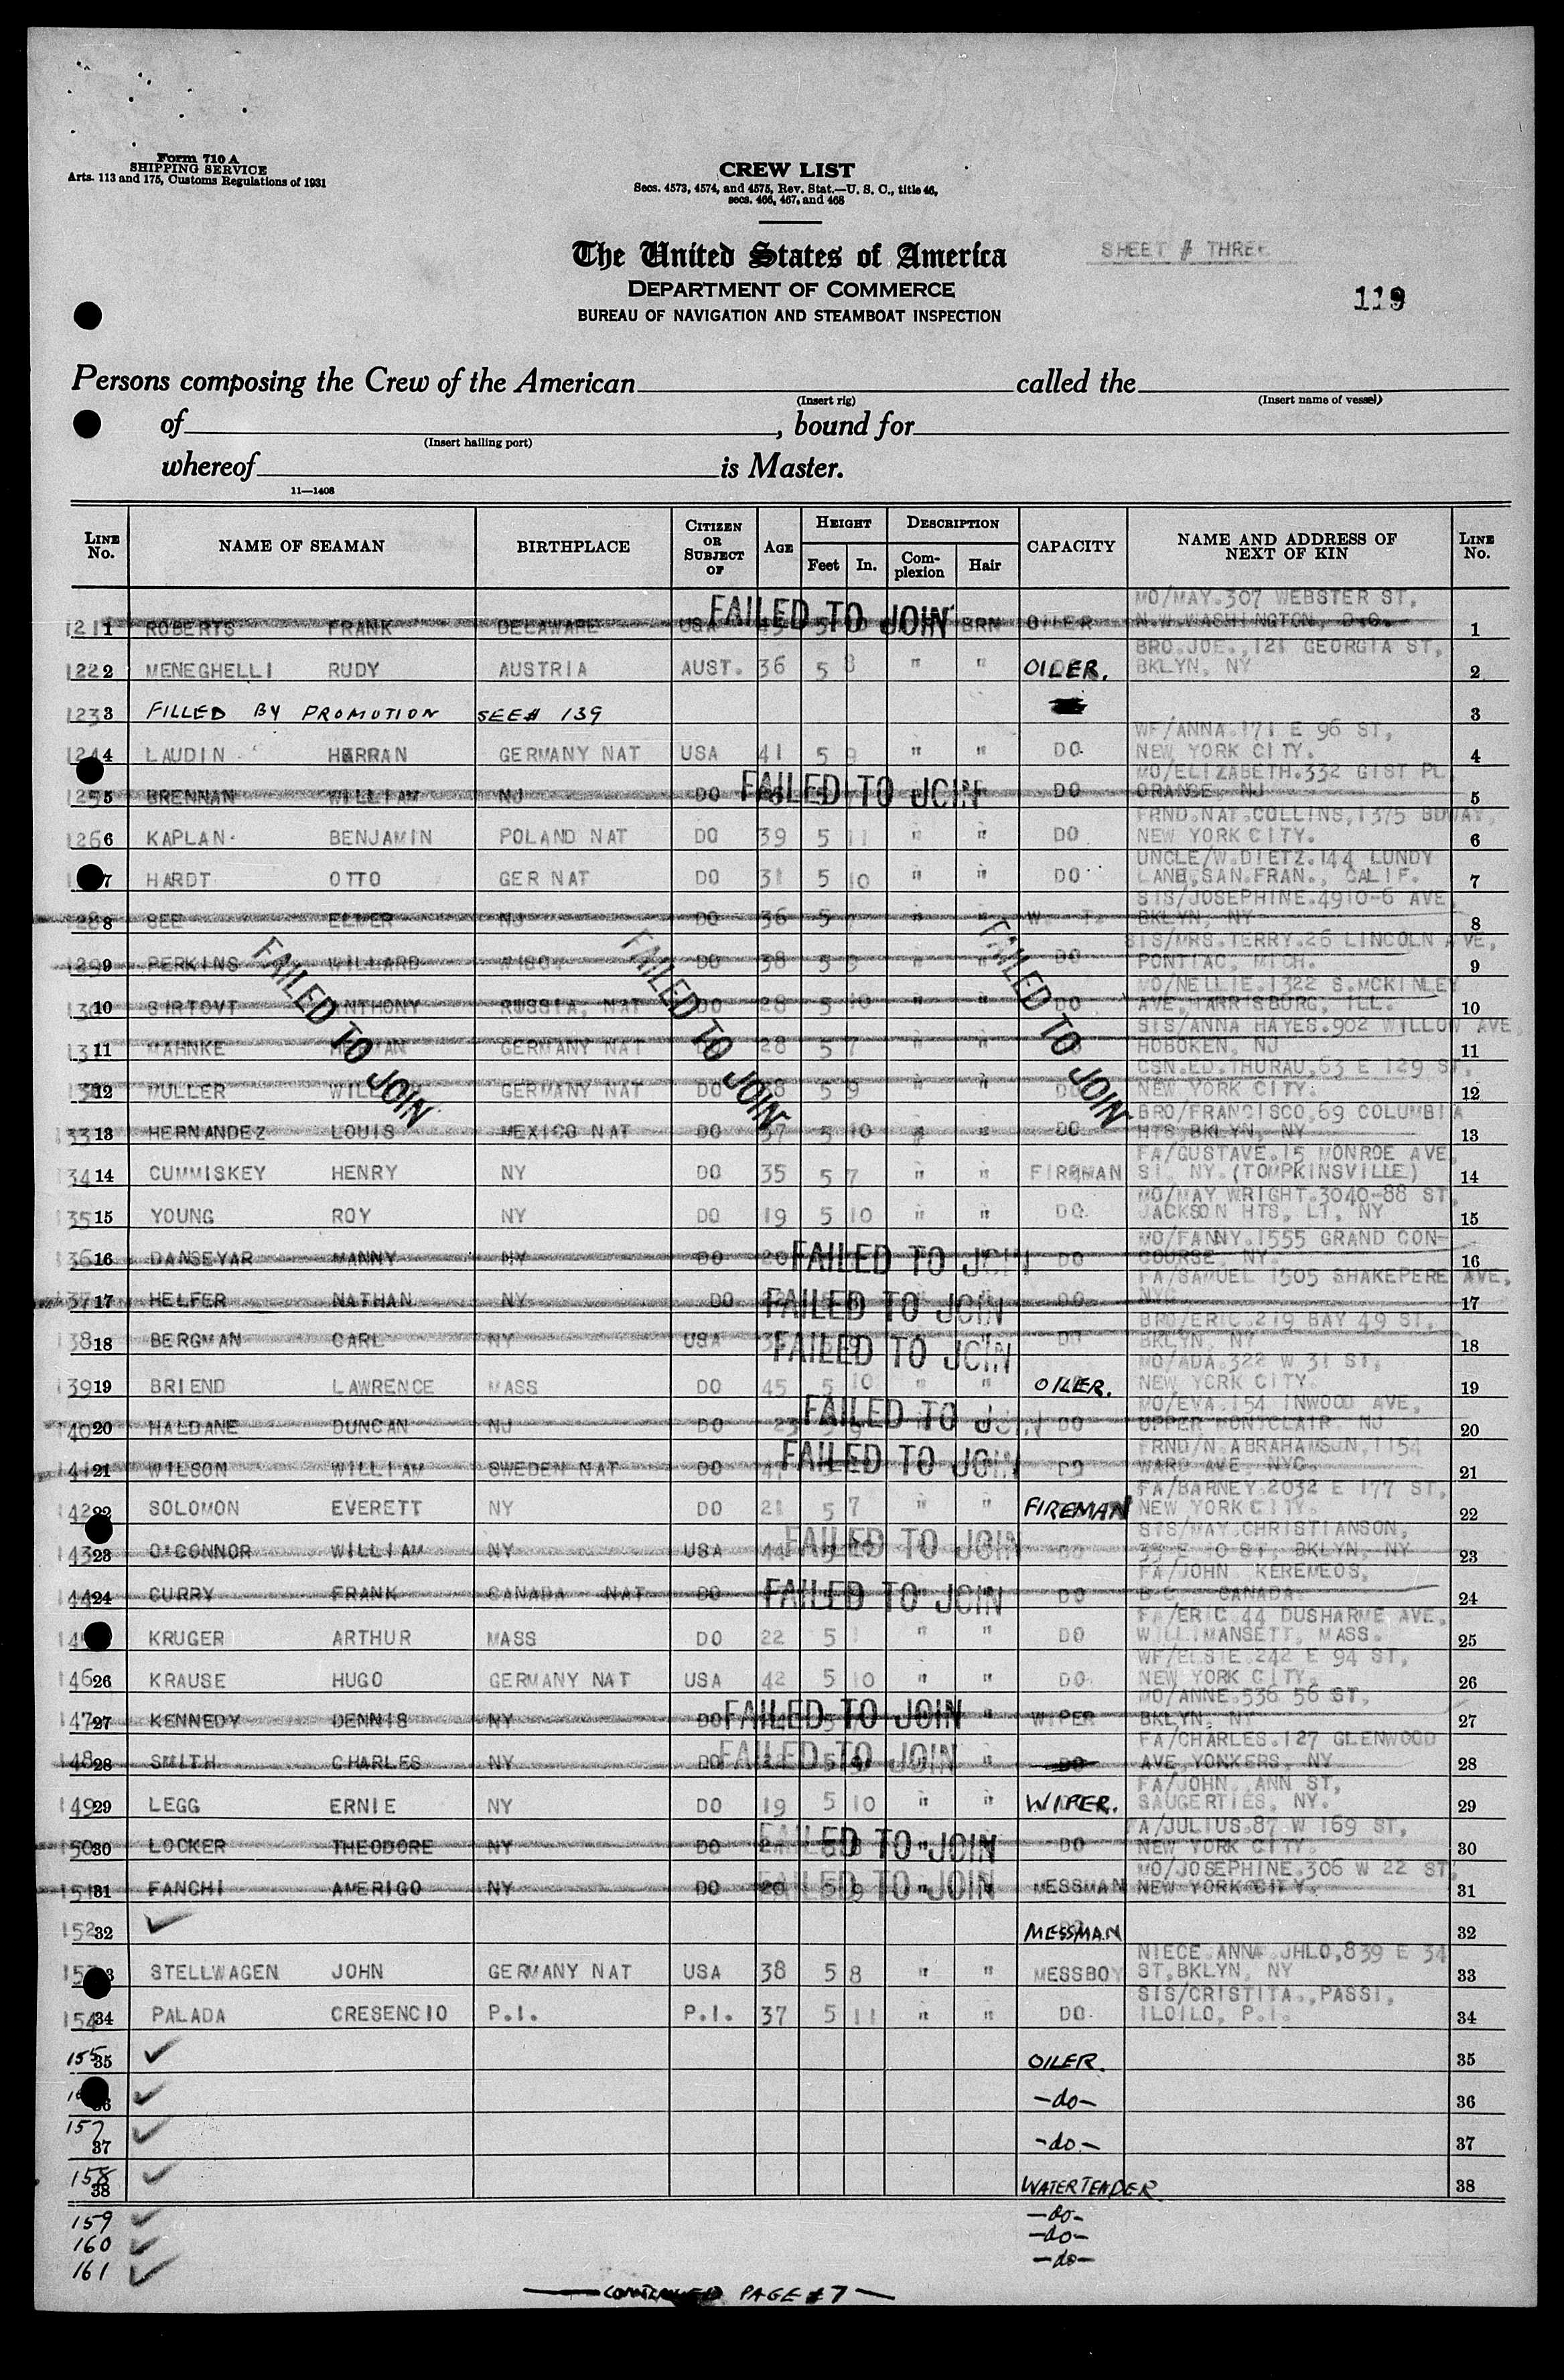 Form 710 A
SHIPPING SERVICE
Arts. 113 and 175, Customs Regulations of 1931
CREW LIST
Secs. 4573, 4574, and 4575, Rev. Stat.—U. S. C., title 46,
secs. 466, 467, and 468
The United States of America
SHEET # THREE
DEPARTMENT OF COMMERCE
119
BUREAU OF NAVIGATION AND STEAMBOAT INSPECTION
Persons composing the Crew of the American called the
(Insert rig) (Insert name of vessel)
of , bound for
(Insert hailing port)
whereof is Master.
11—1408
LINE No. NAME OF SEAMAN BIRTHPLACE CITIZEN OR SUBJECT OF AGE HEIGHT Feet In. DESCRIPTION Complexion Hair CAPACITY NAME AND ADDRESS OF NEXT OF KIN LINE No.
MO/MAY.307 WEBSTER ST,
121 1 ROBERTS FRANK DELAWARE USA 5 FAILED TO JOIN BRN OILER N.W.WASHINGTON, D.C. 1
BRO.JOE.,121 GEORGIA ST,
122 2 MENEGHELLI RUDY AUSTRIA AUST. 36 5 8 " " OILER. BKLYN, NY 2
123 3 FILLED BY PROMOTION SEE# 139 3
WF/ANNA.171 E 96 ST,
124 4 LAUDIN HERRAN GERMANY NAT USA 41 5 9 " " DO NEW YORK CITY. 4
MO/ELIZABETH.332 GIST PL
125 5 BRENNAN WILLIAM NJ DO FAILED TO JOIN DO ORANGE, NJ 5
FRND.NAT.COLLINS,1375 BDWAY,
126 6 KAPLAN BENJAMIN POLAND NAT DO 39 5 11 " " DO NEW YORK CITY. 6
UNCLE/W.DIETZ.144 LUNDY
7 HARDT OTTO GER NAT DO 31 5 10 " " DO LANE,SAN.FRAN., CALIF. 7
SIS/JOSEPHINE.4910-6 AVE,
128 8 SEE ELMER NJ DO 36 5 " " BKLYN, NY 8
SIS/MRS.TERRY.26 LINCOLN AVE,
129 9 PERKINS WILLARD DO 38 5 " " DO PONTIAC, MICH. 9
MO/NELLIE.1322 S.MCKINLEY
130 10 SIRTOVT ANTHONY RUSSIA, NAT DO 28 5 10 " " DO AVE,HARRISBURG, ILL. 10
SIS/ANNA HAYES.902 WILLOW AVE,
131 11 MAHNKE GERMANY NAT 28 5 7 " " HOBOKEN, NJ 11
CSN.ED.THURAU,63 E 129 ST,
12 MULLER GERMANY NAT DO 5 9 " " NEW YORK CITY. 12
BRO/FRANCISCO,69 COLUMBIA
133 13 HERNANDEZ LOUIS MEXICO NAT DO 37 5 10 " " DO HTS,BKLYN, NY 13
FAILED TO JOIN FAILED TO JOIN FAILED TO JOIN
FA/GUSTAVE.15 MONROE AVE,
134 14 CUMMISKEY HENRY NY DO 35 5 7 " " FIREMAN SI, NY.(TOMPKINSVILLE) 14
MO/MAY WRIGHT.3040-88 ST,
135 15 YOUNG ROY NY DO 19 5 10 " " DO JACKSON HTS, LI, NY 15
MO/FANNY.1555 GRAND CON-
136 16 DANSEYAR MANNY NY DO FAILED TO JOIN DO COURSE, NY. 16
FA/SAMUEL 1505 SHAKEPERE AVE,
137 17 HELFER NATHAN NY DO FAILED TO JOIN DO NYC 17
BRO/ERIC.219 BAY 49 ST,
138 18 BERGMAN CARL NY USA FAILED TO JOIN DO BKLYN, NY 18
MO/ADA.322 W 31 ST,
139 19 BRIEND LAWRENCE MASS DO 45 5 10 " " OILER. NEW YORK CITY. 19
MO/EVA.154 INWOOD AVE,
140 20 HALDANE DUNCAN NJ DO 23 FAILED TO JOIN DO UPPER MONTCLAIR, NJ 20
FRND/N.ABRAHAMSON,1154
141 21 WILSON WILLIAM SWEDEN NAT DO FAILED TO JOIN DO WARD AVE, NYC. 21
FA/BARNEY.2032 E 177 ST,
142 22 SOLOMON EVERETT NY DO 21 5 7 " " FIREMAN NEW YORK CITY. 22
SIS/MAY.CHRISTIANSON,
143 23 O'CONNOR WILLIAM NY USA 44 FAILED TO JOIN DO BKLYN, NY 23
FA/JOHN KEREMEOS,
144 24 CURRY FRANK CANADA NAT DO FAILED TO JOIN DO B C CANADA 24
FA/ERIC.44 DUSHARME AVE,
KRUGER ARTHUR MASS DO 22 5 " " DO WILLIMANSETT, MASS. 25
WF/ELSIE.242 E 94 ST,
146 26 KRAUSE HUGO GERMANY NAT USA 42 5 10 " " DO NEW YORK CITY. 26
MO/ANNE.536 56 ST,
147 27 KENNEDY DENNIS NY DO FAILED TO JOIN " WIPER BKLYN, NY 27
FA/CHARLES.127 GLENWOOD
148 28 SMITH CHARLES NY DO FAILED TO JOIN " DO AVE,YONKERS, NY 28
FA/JOHN ANN ST,
149 29 LEGG ERNIE NY DO 19 5 10 " " WIPER. SAUGERTIES, NY. 29
FA/JULIUS.87 W 169 ST,
150 30 LOCKER THEODORE NY DO FAILED TO JOIN DO NEW YORK CITY 30
MO/JOSEPHINE.306 W 22 ST,
151 31 FANCHI AMERIGO NY DO 20 5 9 FAILED TO JOIN MESSMAN NEW YORK CITY. 31
152 32 ✓ MESSMAN 32
839 E 34
STELLWAGEN JOHN GERMANY NAT USA 38 5 8 " " MESSBOY ST,BKLYN, NY 33
SIS/CRISTITA.,PASSI,
154 34 PALADA CRESENCIO P.I. P.I. 37 5 11 " " DO ILOILO, P.I. 34
155 35 ✓ OILER. 35
36 ✓ —do— 36
157 37 ✓ —do— 37
158 38 ✓ WATERTENDER 38
159 ✓ —do—
160 ✓ —do—
161 ✓ —do—
CONTINUED PAGE #7